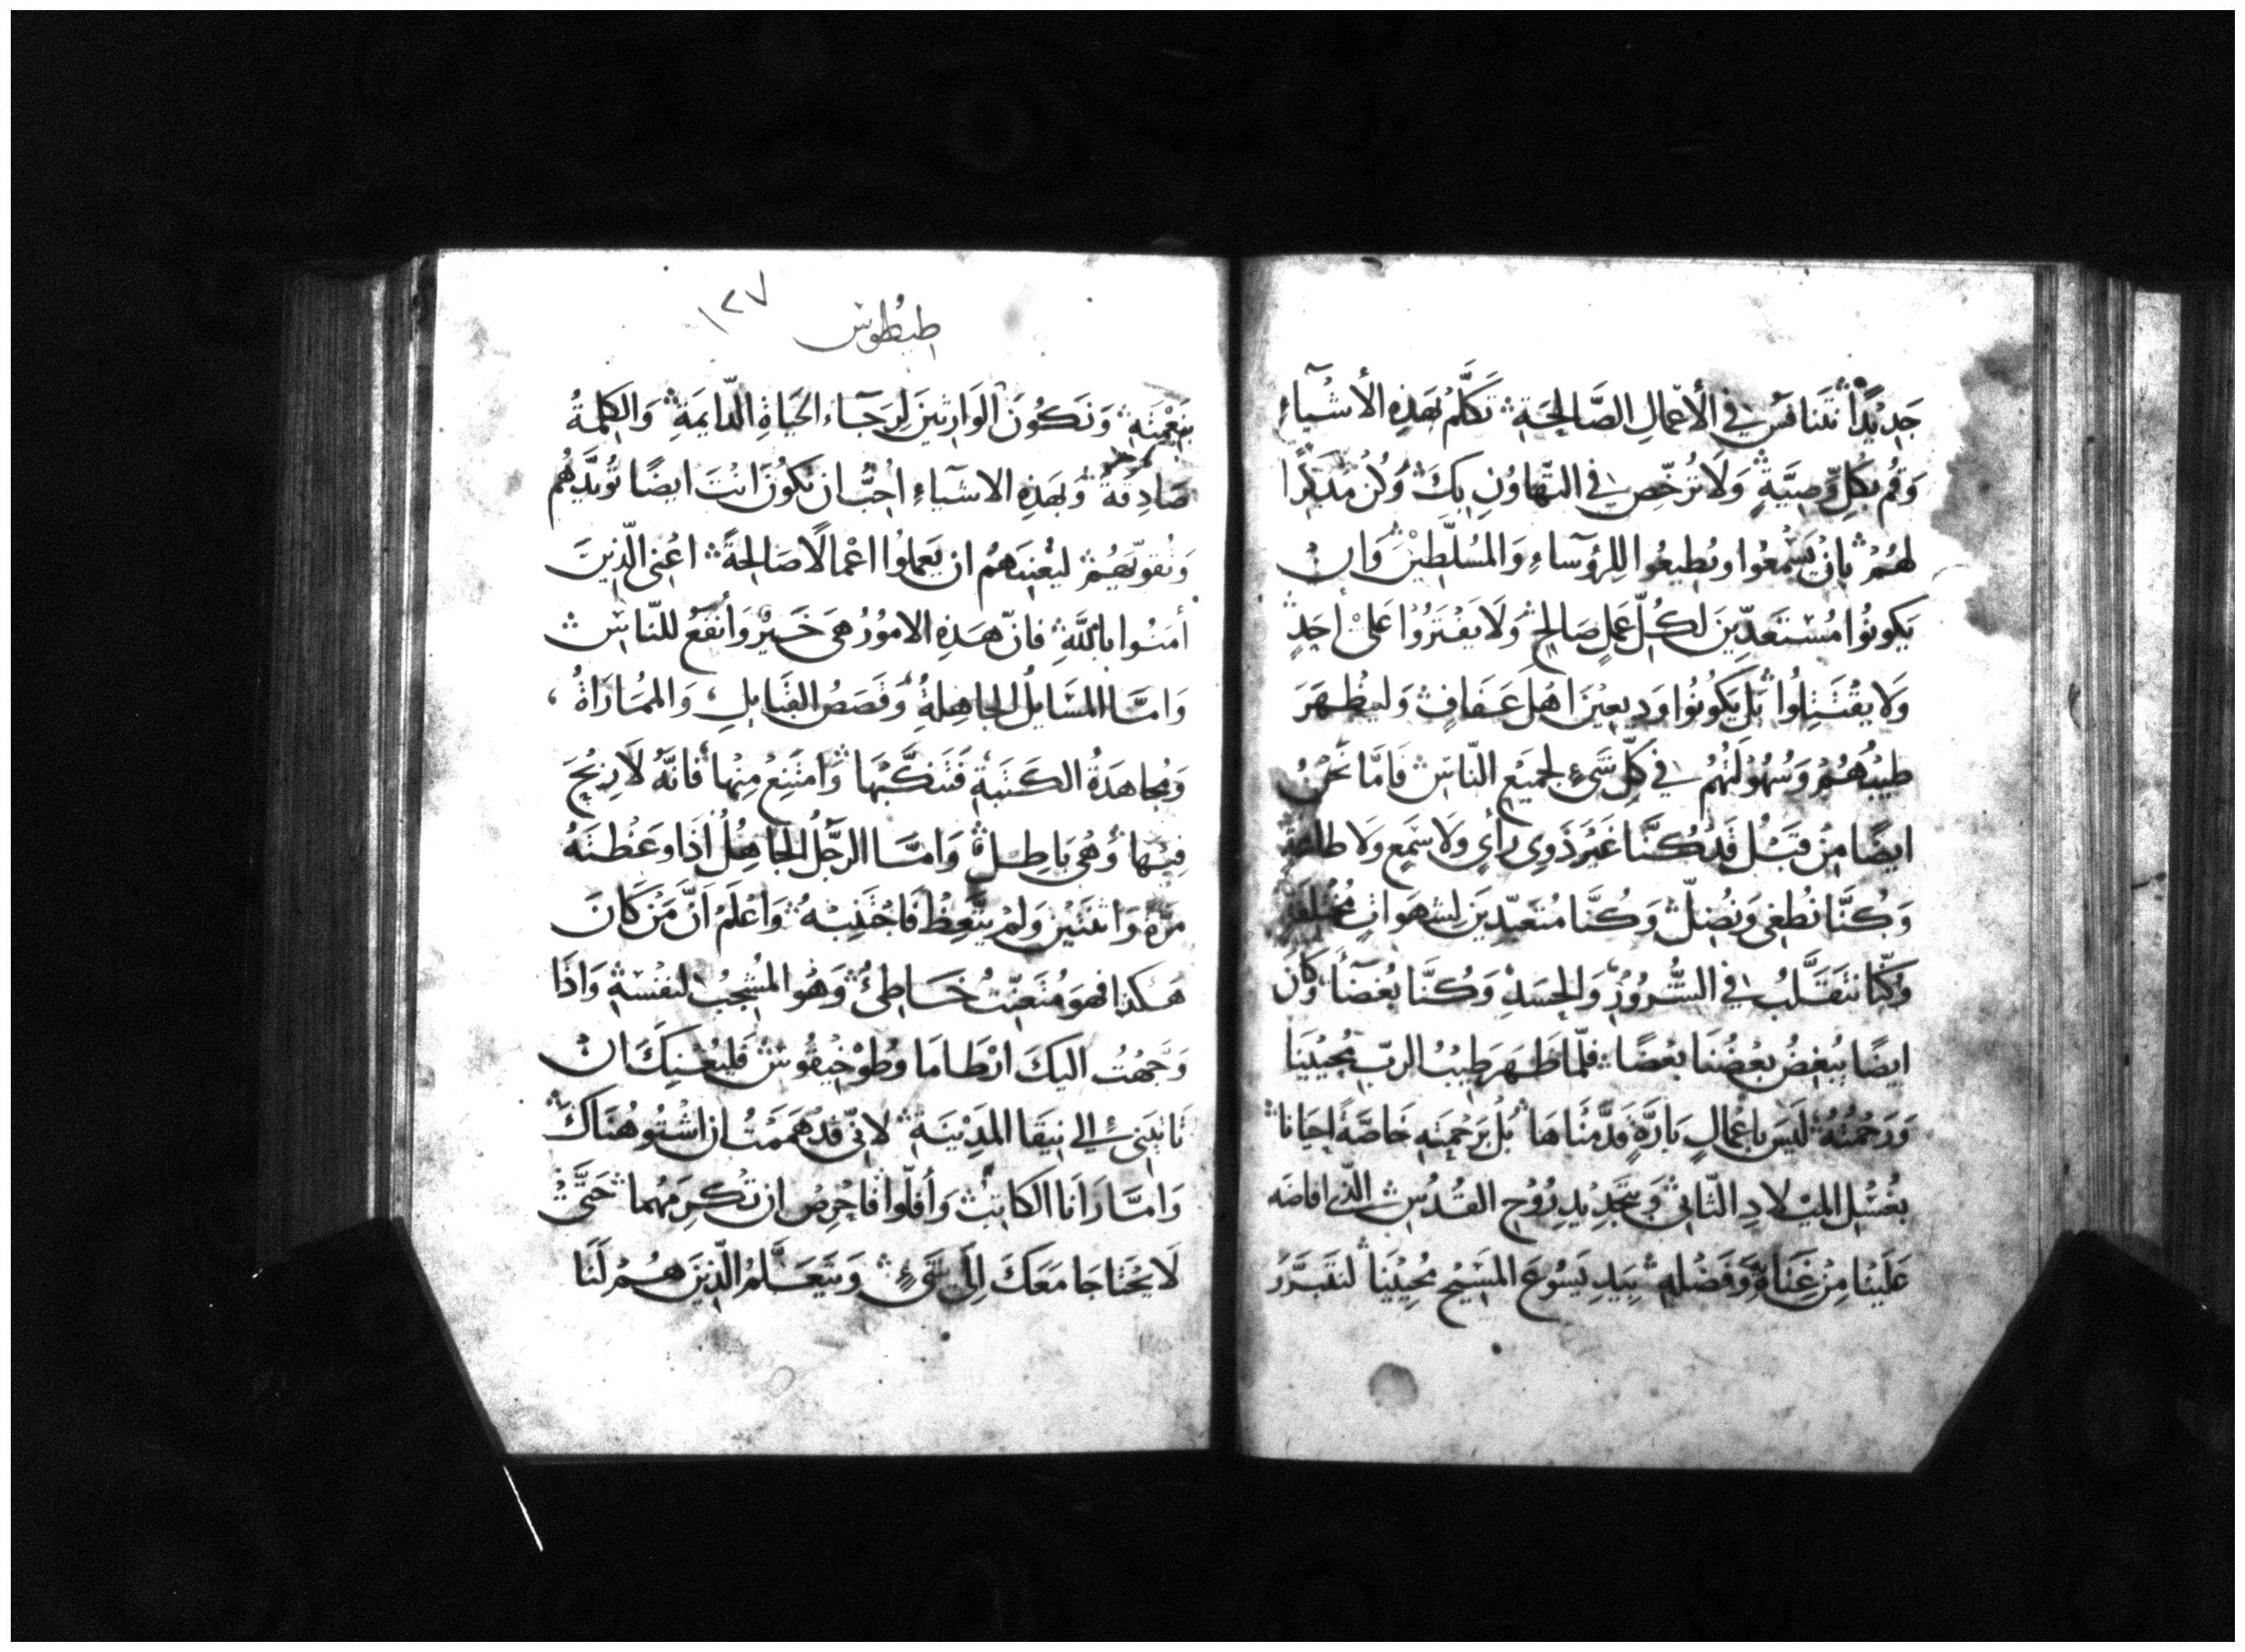 جَدِيْدًا تَتَنافَسُ في الأعْمالِ الصَّالِحَةِ تَكَلَّمْ بهَذِهِ الأشْيآءِ
وَقُم بكلِّ وَصِيَّةٍ وَلَا تُرَخِّص في التّهاوُنِ بِكَ وَكُنْ مُذَكِّرًا
لهُمْ بانْ يَسْمَعُوا ويُطيعُوا للرُؤَسآءِ وَالمُسَلَّطِيْنَ وَانْ
يَكونُوا مُسْتَعَدِّينَ لكُلِّ عَمَلٍ صَالحٍ وَلَا يَفْتَرُوْا عَلىْ أحَدٍ
وَلا يقْتَتِلُوا بَلْ يَكُونُوا وَدِيعِيْنَ اهْلَ عَفَافٍ وَليَظْهَرَ
طيْبُهُمْ وَسُهُوْلَتُهُم في كلِّ شَيءٍ لجَميْعِ النّاسِ فَامَّا نَحْنُ
ايضًا مِنْ قبْلُ قَدْ كُنَّا غَيْرَ ذَوِي رَأيٍ وَلا سَمْعٍ وَلا طاعَةٍ
وَكُنَّا نُطْغي وَنُضِلّ وَكُنَّا مُتَعَبّدِيْنَ لِشهَوَاتٍ مُختلفَةٍ
وَكنّا نَتَقَلَّبُ في الشُّرُوْرِ وَالحسَدِ وَكُنَّا بُغَضَآ وَكانَ
ايضًا يُبغِضُ بعْضُنَا بعْضًا فلمّا ظَهَرَ طِيْبُ الربّ مُحيْينَا
وَرَحْمَتُهُ لَيْسَ باعْمالٍ بَارَّةٍ قدَّمْناهَا بَلْ برَحْمَتِهِ خَاصَّةً احيَانَا
بغُسْلِ الميْلادِ الثّاني وَبتَجدِيْدِ رُوْحِ القُدُسِ الّذي افاضَه
عَلَيْنا مِنْ غِنَاهُ وَفَضْلِهِ بيَدِ يَسُوْعَ المَسِيْحِ مُحيِيْنَا لنَتَبَرَّرَ
١٢٧
طيطوس
بنِعْمَتِهِ وَنَكُوْنَ الوَارِثِيْنَ لِرَجَآء الحَيَاةِ الدّايمَةِ وَالكلمَةُ
صَادِقةٌ وَبهَذِهِ الاشيَآءِ احُبُّ ان تكُوْنَ انْتَ ايضًا تُؤيّدُهُم
وَتُقَوِّيَهُمْ ليُعْنِيَهُم ان يَعمَلُوا اعْمالًا صَالحةً اعْني الّذِينَ
أمَنُوا باللّهِ فانّ هَذِهِ الامُوْرَ هي خَيْرٌ وَأنْفَعُ للنّاسِ
وَامَّا المسَايلُ الجَاهِلةُ وَقَصَصُ القَبَايلِ وَالممُارَاةُ
وَمُجاهَدَةُ الكَتَبَةِ فَتَنكَّبْهَا وَامْتَنِعْ مِنْها فانَّهُ لَا رِبْحَ
فيْها وَهْي بَاطِلةٌ وَامَّا الرَّجُلُ الجَاهِلُ اذَا وَعَظْتَهُ
مَرَّةً وَاثنَتَيْنِ وَلمْ يتّعِظْ فَاجْتَنِبْهُ وَاعْلَمْ انَّ مَنْ كَانَ
هَكَذا فهوَ مُتَعَنِّتٌ خَاطِئٌ وَهُوَ المُشجِبُ لنفْسَهِ وَاذَا
وَجَّهْتُ اليكَ ارْطامَا وطُوْخيْقُوسَ فليَعْنِكَ انْ
تَاتيَني إلى نيقَا المدِيْنَةِ لانّي قدْ هَمَمْتُ ان اشْتُو هُنَاكَ
وَامَّا زَانَا الكاتِبْ وَأفلّوا فاحْرِصْ ان تُكرِمَهُما حَتّىْ
لَا يحْتَاجَا مَعَكَ إلى شَيءٍ وَيَتَعَلَّمُ الّذِيْنَ هُمْ لَنَا